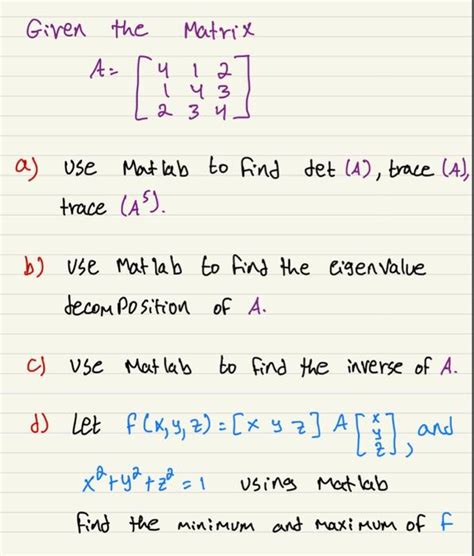 Given the Matrix
A= [4 1 2
1 4 3
2 3 4]
a) use Matlab to find det (A), trace (A),
trace (A⁵).
b) use Matlab to find the eigenvalue
decomposition of A.
c) use Matlab to find the inverse of A.
d) Let f(x,y,z) = [x y z] A [x y z], and
x²+y²+z² = 1 using Matlab
find the minimum and maximum of f